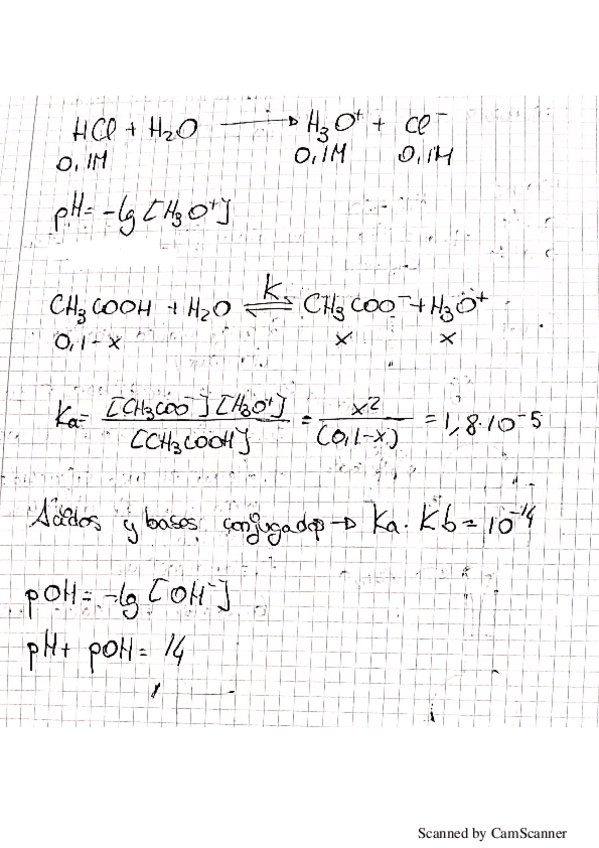 HCl + H₂O → H₃O⁺ + Cl⁻
0,1M 0,1M 0,1M
pH = -lg [H₃O⁺]
CH₃COOH + H₂O ⇌ K CH₃COO⁻ + H₃O⁺
0,1-x x x
Ka = [CH₃COO⁻][H₃O⁺] / [CH₃COOH] = x² / (0,1-x) = 1,8·10⁻⁵
Ácidos y bases conjugados → Ka · Kb = 10⁻¹⁴
pOH = -lg [OH⁻]
pH + pOH = 14
Scanned by CamScanner